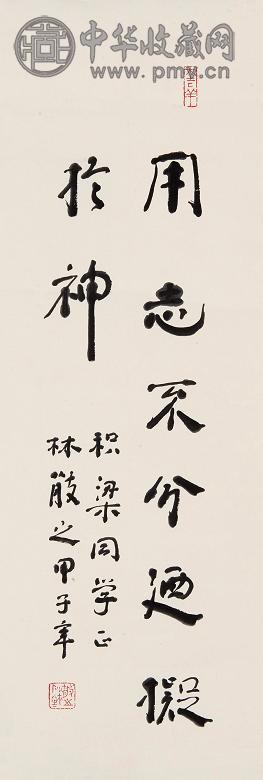 中华收藏网
用志不分迺擬
於神
积梁同学正
林散之甲子年